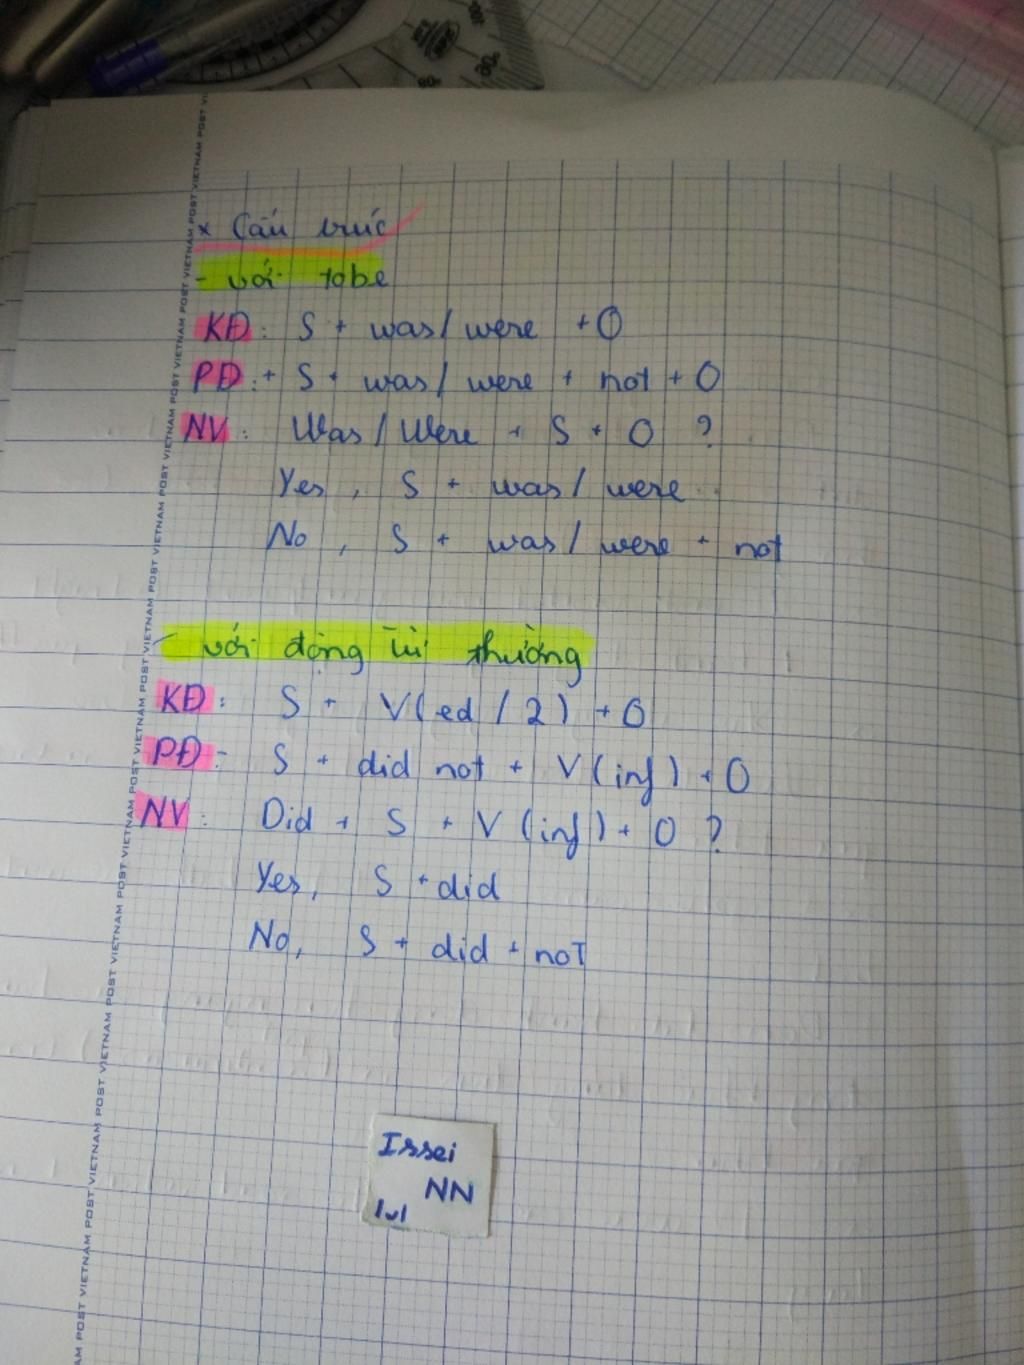 x Cấu trúc
- với tobe
KĐ: S + was/ were + O
PĐ: + S + was/ were + not + O
NV: Was/Were + S + O ?
Yes, S + was/ were
No, S + was/ were + not
- với động từ thường
KĐ: S + V(ed / 2) + O
PĐ: S + did not + V(inf) + O
NV: Did + S + V(inf) + O ?
Yes, S + did
No, S + did + not
Issei
NN
1v1
VIETNAM POST VIETNAM POST VIETNAM POST VIETNAM POST VIETNAM POST VIETNAM POST VIETNAM POST